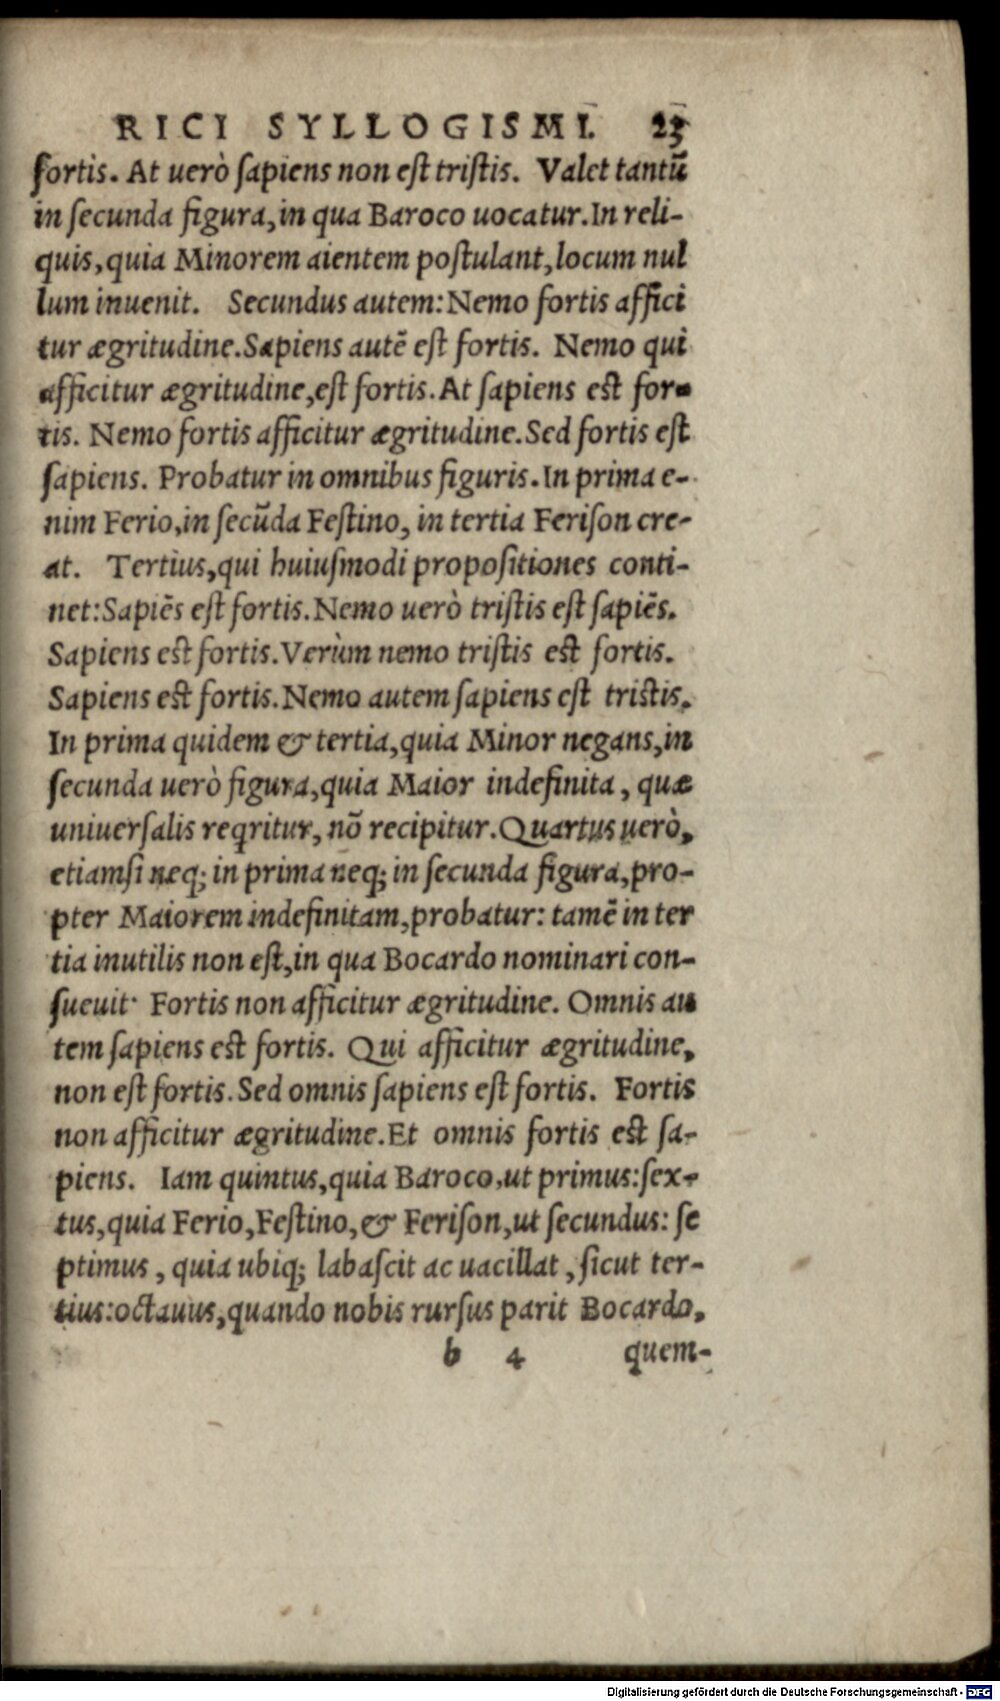 RICI SYLLOGISMI. 23
fortis. At uerò sapiens non est tristis. Valet tantũ
in secunda figura, in qua Baroco uocatur. In reli-
quis, quia Minorem aientem postulant, locum nul
lum inuenit. Secundus autem: Nemo fortis affici
tur ægritudine. Sapiens autẽ est fortis. Nemo qui
afficitur ægritudine, est fortis. At sapiens est for-
tis. Nemo fortis afficitur ægritudine. Sed fortis est
sapiens. Probatur in omnibus figuris. In prima e-
nim Ferio, in secũda Festino, in tertia Ferison cre-
at. Tertius, qui huiusmodi propositiones conti-
net: Sapiẽs est fortis. Nemo uerò tristis est sapiẽs.
Sapiens est fortis. Verùm nemo tristis est fortis.
Sapiens est fortis. Nemo autem sapiens est tristis.
In prima quidem & tertia, quia Minor negans, in
secunda uerò figura, quia Maior indefinita, quæ
uniuersalis reqritur, nõ recipitur. Quartus uerò,
etiamsi neq; in prima neq; in secunda figura, pro-
pter Maiorem indefinitam, probatur: tamẽ in ter
tia inutilis non est, in qua Bocardo nominari con-
sueuit. Fortis non afficitur ægritudine. Omnis au
tem sapiens est fortis. Qui afficitur ægritudine,
non est fortis. Sed omnis sapiens est fortis. Fortis
non afficitur ægritudine. Et omnis fortis est sa-
piens. Iam quintus, quia Baroco, ut primus: sex-
tus, quia Ferio, Festino, & Ferison, ut secundus: se
ptimus, quia ubiq; labascit ac uacillat, sicut ter-
tius: octauus, quando nobis rursus parit Bocardo,
b 4 quem-
Digitalisierung gefördert durch die Deutsche Forschungsgemeinschaft - DFG